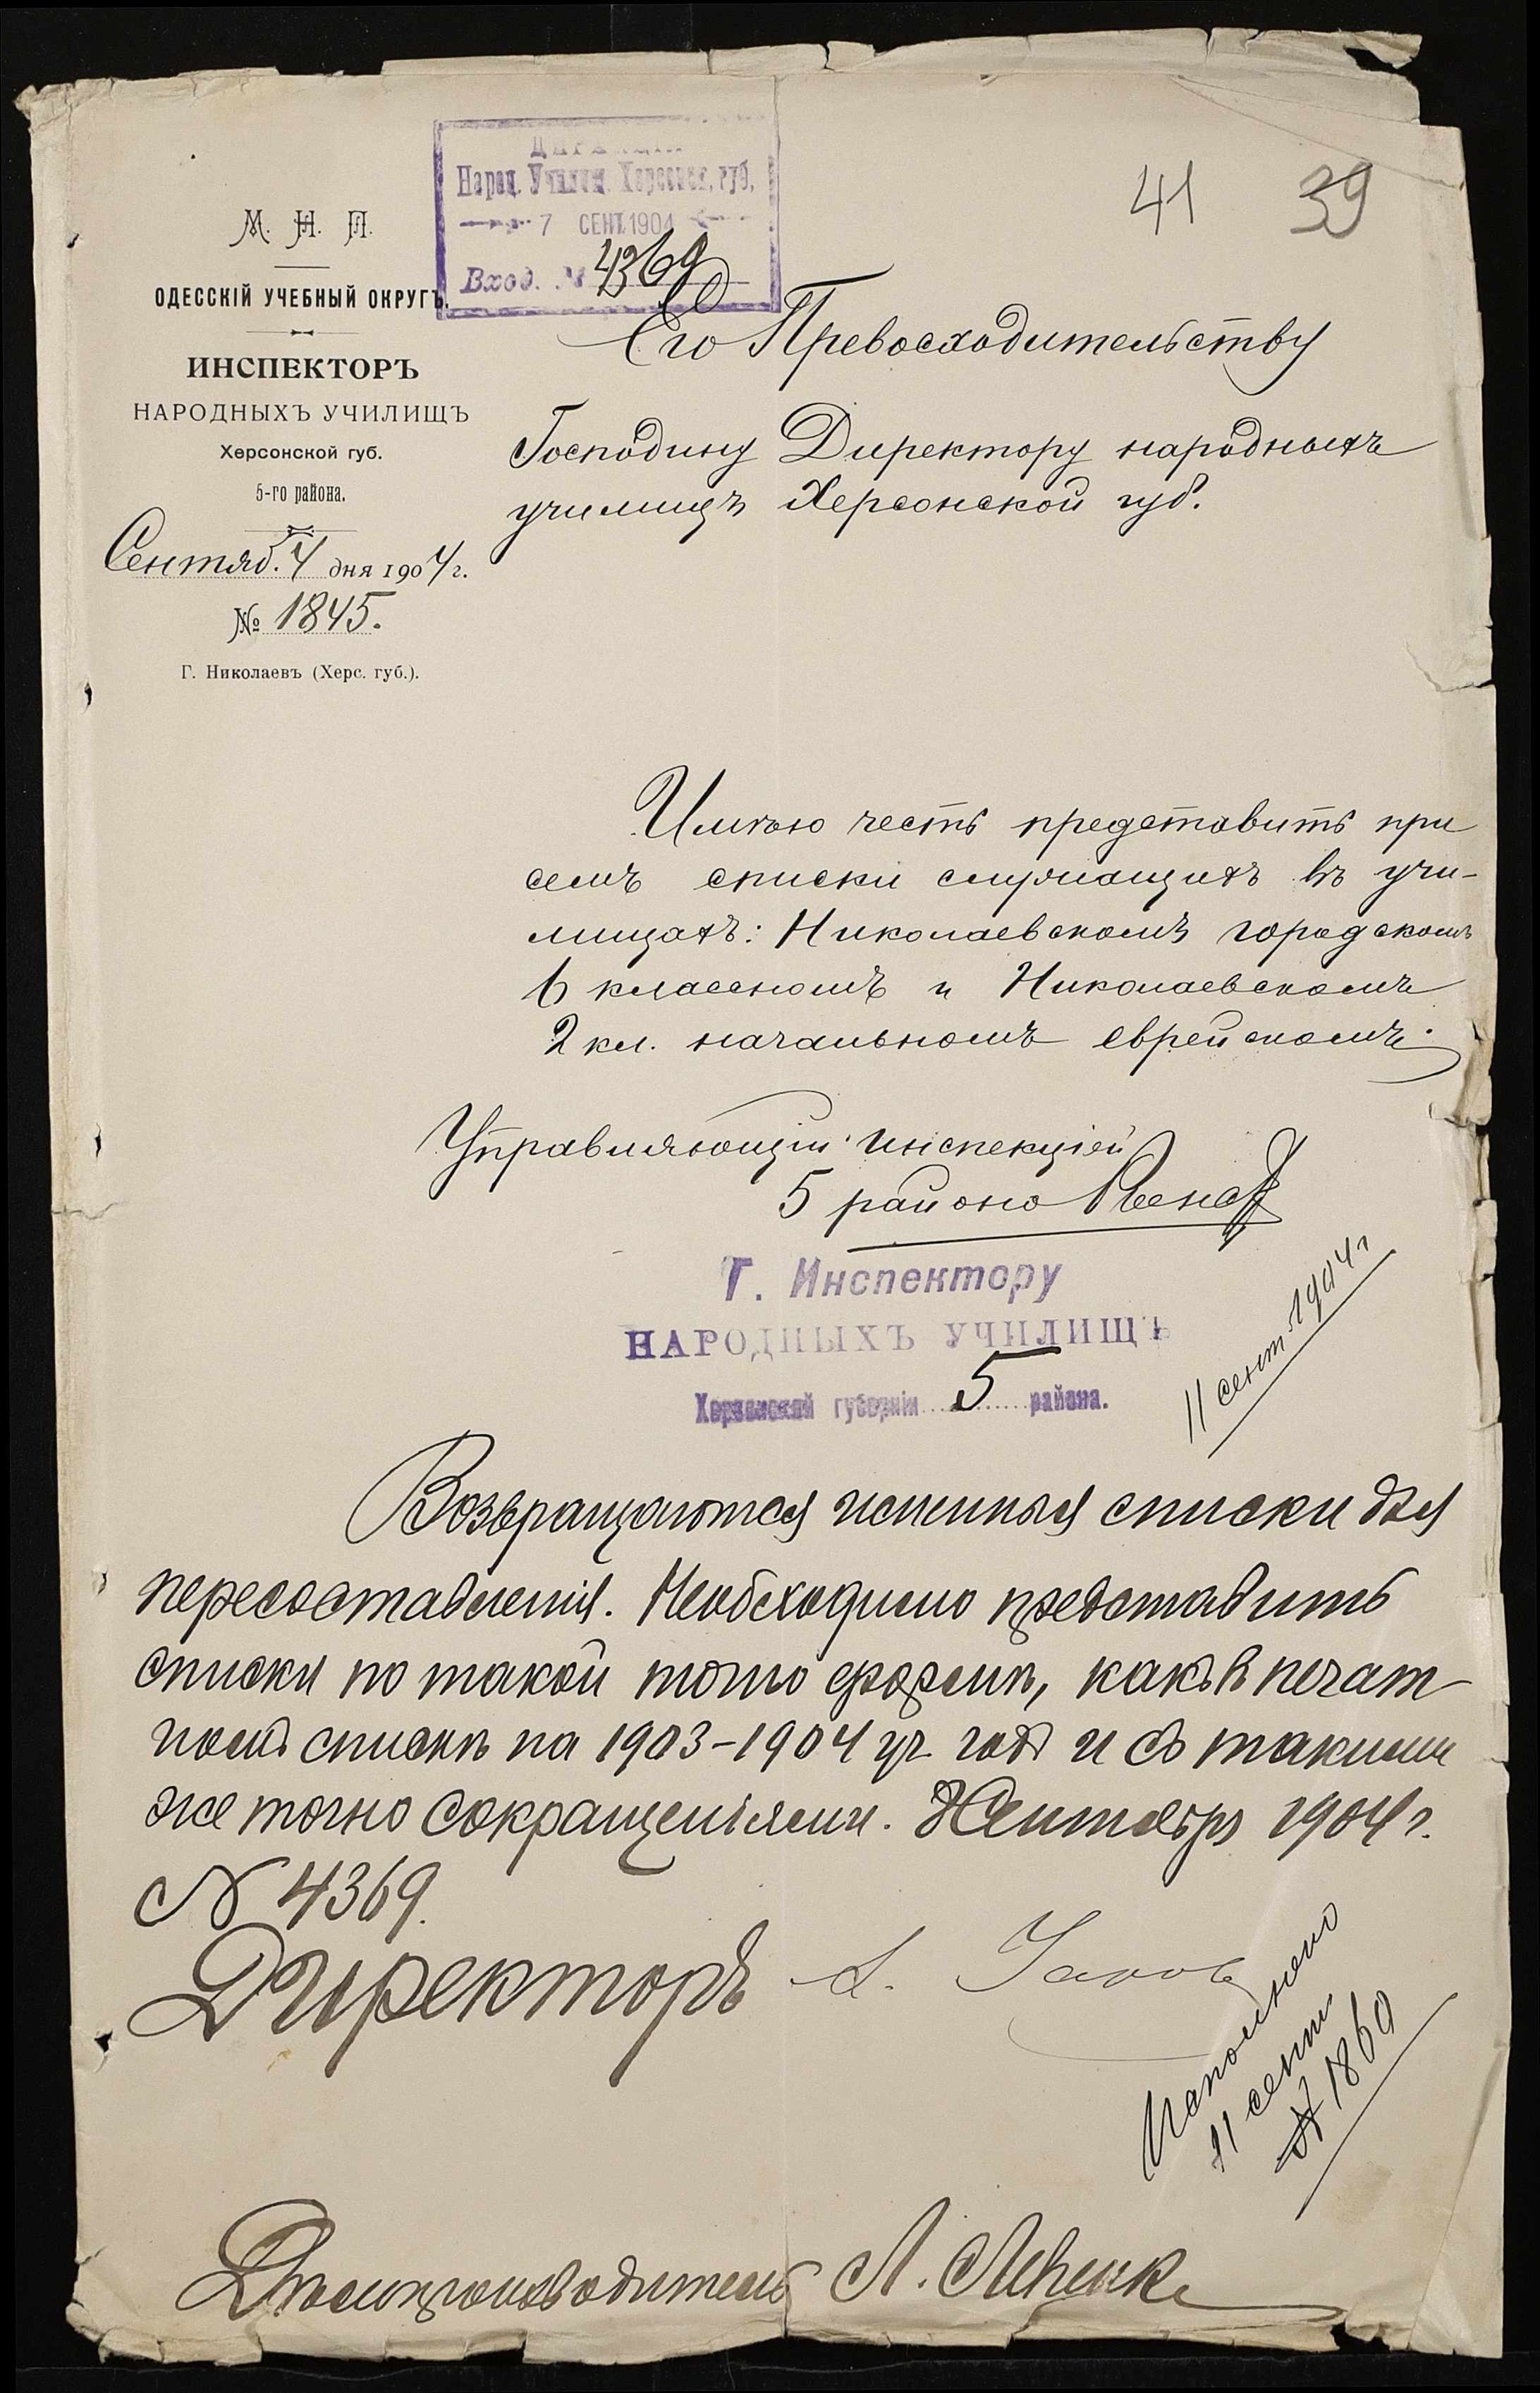 41 39
М. Н. П.
ОДЕССКІЙ УЧЕБНЫЙ ОКРУГЪ.
ИНСПЕКТОРЪ
НАРОДНЫХЪ УЧИЛИЩЪ
Херсонской губ.
5-го района.
Сентяб. 4 дня 1904 г.
№ 1845.
Г. Николаевъ (Херс. губ.).
ДИРЕКЦІЯ
Народ. Училищ. Херсонск. губ.
7 СЕНТ. 1904
Вход. № 4369
Его Превосходительству
Господину Директору народныхъ
училищъ Херсонской губ.
Имѣю честь представить при
семъ списки служащихъ въ учи-
лищахъ: Николаевскомъ городскомъ
6 классномъ и Николаевскомъ
2 кл. начальномъ еврейскомъ.
Управляющій инспекціей
5 района
Г. Инспектору
НАРОДНЫХЪ УЧИЛИЩЪ
Херсонской губерніи 5 района.
11 сент 1904 г
Возвращаются списки для
пересоставленія. Необходимо представить
списки по такой точно формѣ, какъ въ печат-
номъ спискѣ на 1903-1904 уч. годъ и съ такими
же точно сокращеніями. Сентября 1904 г.
№ 4369.
Директоръ
Исполнено
11 сент
№ 1860
Дѣлопроизводитель А.